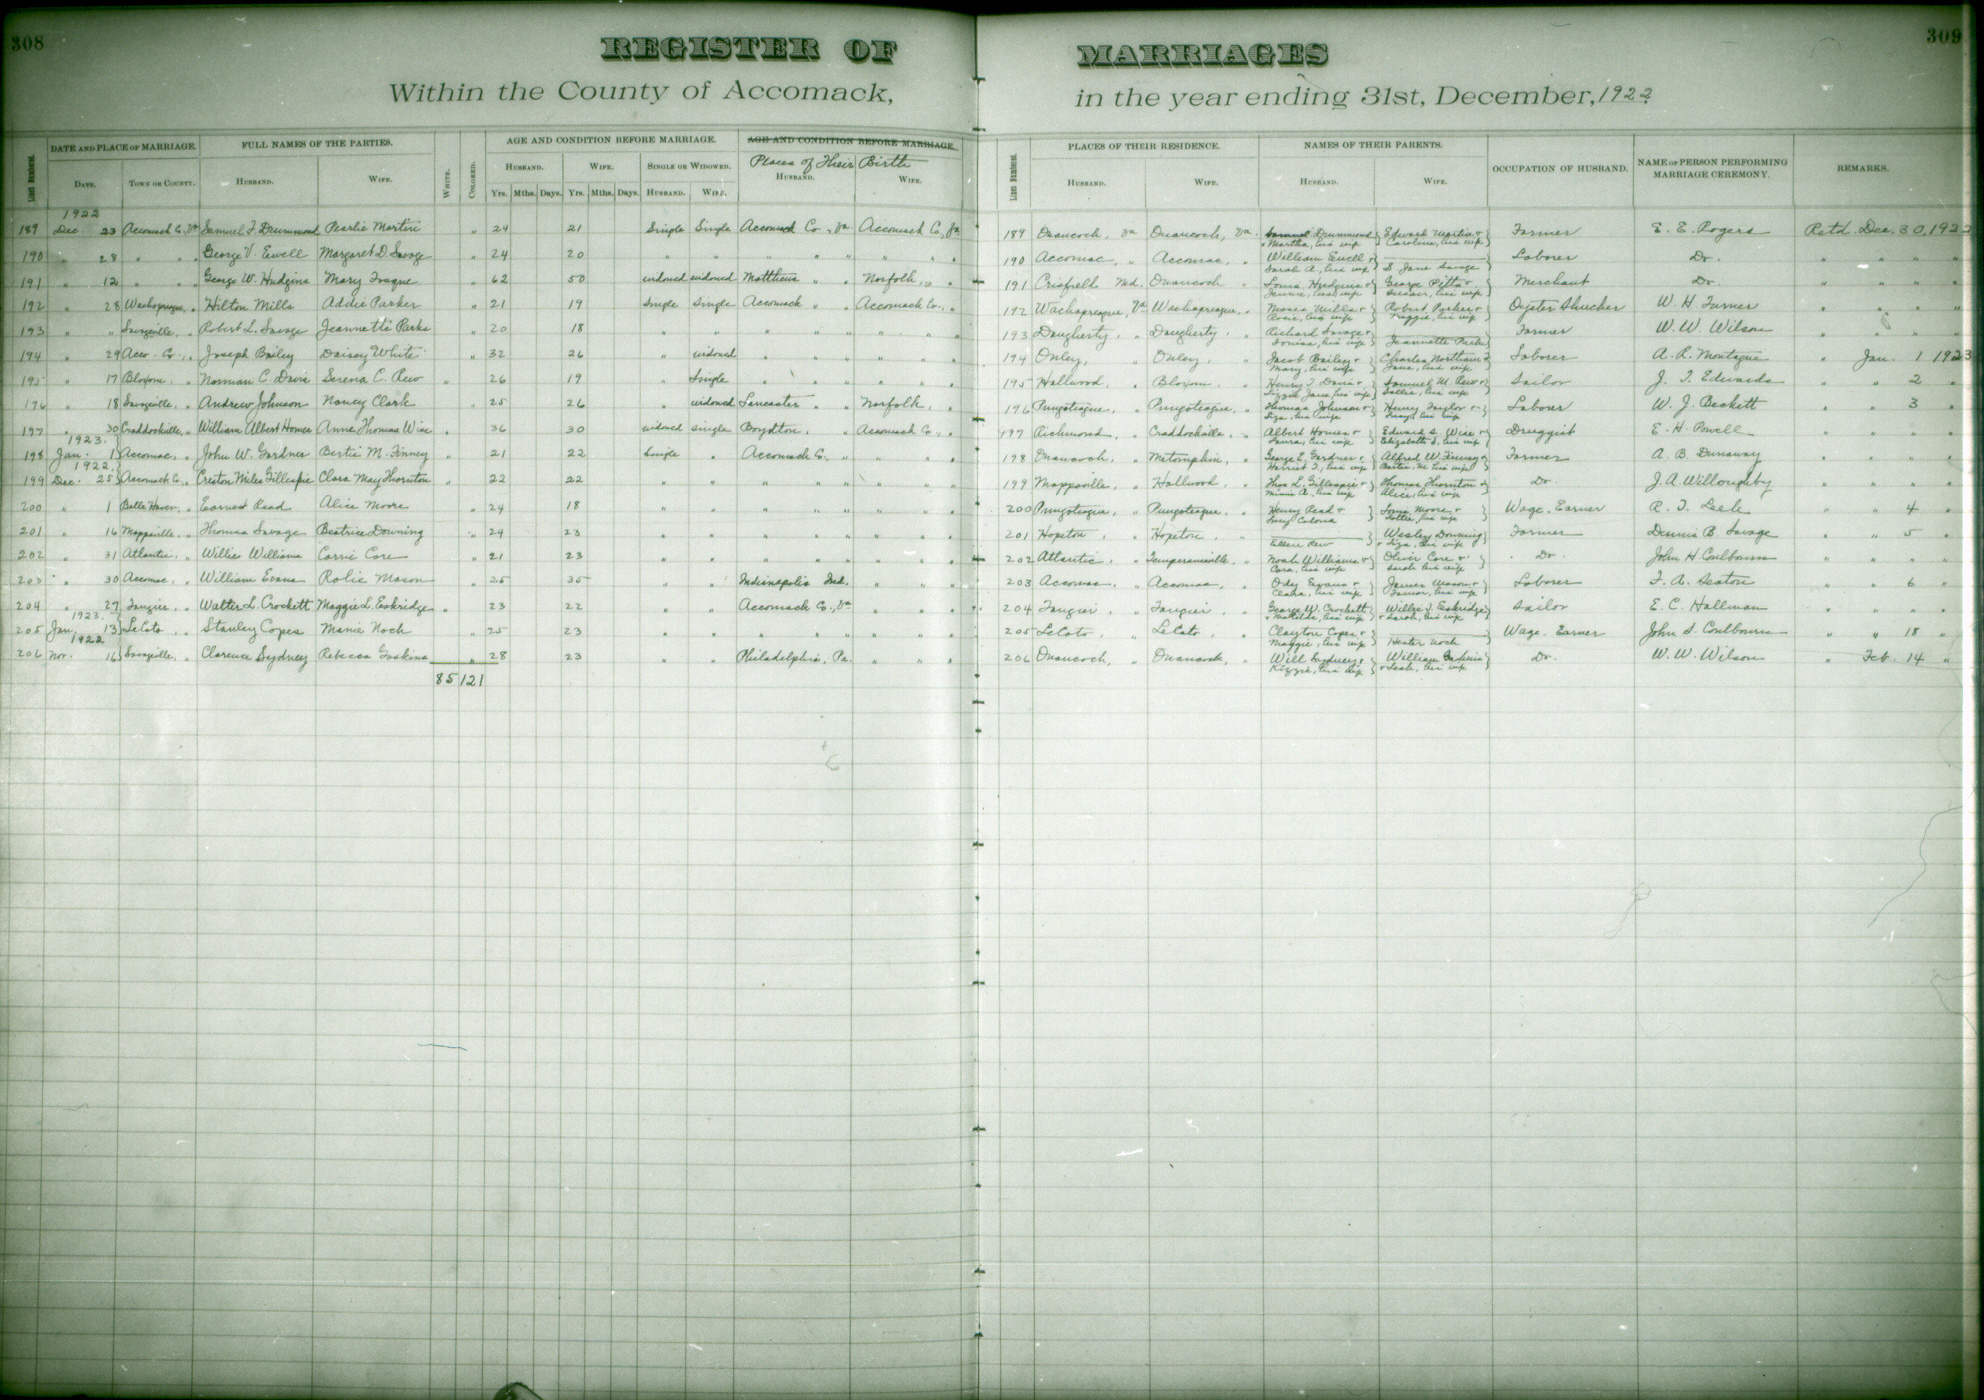 308
REGISTER OF MARRIAGES
309
Within the County of Accomack, in the year ending 31st, December, 1922
LINE NUMBER. DATE AND PLACE OF MARRIAGE. FULL NAMES OF THE PARTIES. WHITE. COLORED. AGE AND CONDITION BEFORE MARRIAGE. AGE AND CONDITION BEFORE MARRIAGE. LINE NUMBER. PLACES OF THEIR RESIDENCE. NAMES OF THEIR PARENTS. OCCUPATION OF HUSBAND. NAME OF PERSON PERFORMING MARRIAGE CEREMONY. REMARKS.
Places of Their Birth
DATE. TOWN OR COUNTY. HUSBAND. WIFE. HUSBAND. WIFE. SINGLE OR WIDOWED. HUSBAND. WIFE. HUSBAND. WIFE. HUSBAND. WIFE.
Yrs. Mths. Days. Yrs. Mths. Days. HUSBAND. WIFE.
1922
189 Dec. 23 Accomack Co., Va Samuel T. Drummond Pearlie Martin " 24 21 Single Single Accomack Co., Va. Accomack Co., Va 189 Onancock, Va Onancock, Va. Samuel Drummond & Martha, his wife } Edward Martin & Caroline, his wife } Farmer E. E. Rogers Retd. Dec. 30, 1922
190 " 28 " " " George V. Ewell Margaret D. Savage " 24 20 " " " " " " " " 190 Accomac, " Accomac, " William Ewell & Sarah A., his wife } S. Jane Savage } Laborer Do. " " " "
191 " 12 " " " George W. Hudgins Mary Teague " 62 50 widowed widowed Matthews " " Norfolk, " " 191 Crisfield Md. Onancock " Louis Hudgins & his wife } George Pitts & his wife } Merchant Do. " " " "
192 " 28 Wachapreague, " Hilton Mills Addie Parker " 21 19 Single Single Accomack " " Accomack Co., " 192 Wachapreague, Va Wachapreague, " Moses Mills & his wife } Robert Parker & Maggie, his wife } Oyster Shucker W. H. Turner " " " "
193 " " Savageville, " Robert L. Savage Jeannette Parks " 20 18 " " " " " " " " 193 Daugherty, " Daugherty, " Richard Savage & Louisa, his wife } Jeannette Parks } Farmer W. W. Wilson " " " "
194 " 29 Acco. Co., " Joseph Bailey Daisey White " 32 26 " widowed " " " " " " 194 Onley, " Onley, " Jacob Bailey & Mary, his wife } Charles Northam & Jane, his wife } Laborer A. R. Montague " Jan. 1 1923
195 " 17 Bloxom, " Norman C. Davis Serena C. Rew " 26 19 " Single " " " " " " 195 Hallwood, " Bloxom, " Henry T. Davis & Lizzie Jane, his wife } Samuel M. Rew & Sallie, his wife } Sailor J. T. Edwards " " 2 "
196 " 18 Savageville, " Andrew Johnson Nancy Clark " 25 26 " widowed Lancaster " " Norfolk, " " 196 Pungoteague, " Pungoteague, " Thomas Johnson & Liza, his wife } Henry Taylor & his wife } Laborer W. J. Beckett " " 3 "
197 " 30 Craddockville, " William Albert Homes Anne Thomas Wise " 36 30 widowed Single Boydton, " " Accomack Co., " 197 Richmond, " Craddockville, " Albert Homes & Laura, his wife } Edward S. Wise & Elizabeth S., his wife } Druggist E. H. Powell " " " "
1923.
198 Jan. 1 Accomac, " John W. Gardner Bertie M. Finney " 21 22 Single " Accomack Co., " " " " 198 Onancock, " Metompkin, " George E. Gardner & Harriet T., his wife } Alfred W. Finney & Bertie M. his wife } Farmer A. B. Dunaway " " " "
1922.
199 Dec. 25 Accomack Co., " Creston Miles Gillespie Clara May Thornton " 22 22 " " " " " " " " 199 Mappsville, " Hallwood, " Thos. L. Gillespie & Minnie A., his wife } Thomas Thornton & Alice, his wife } Do. J. A. Willoughby " " " "
200 " 1 Belle Haven, " Earnest Read Alice Moore " 24 18 " " " " " " " " 200 Pungoteague, " Pungoteague, " Henry Read & Lucy Colonna } Louis Moore & Lottie, his wife } Wage-Earner R. T. Leek " " 4 "
201 " 16 Mappsville, " Thomas Savage Beatrice Downing " 24 23 " " " " " " " " 201 Hopeton, " Hopeton, " Ellen Rew } Wesley Downing & Liza, his wife } Farmer Dennis B. Savage " " 5 "
202 " 31 Atlantic, " Willie Williams Carrie Core " 21 23 " " " " " " " " 202 Atlantic, " Temperanceville, " Noah Williams & Cora, his wife } Oliver Core & Sarah, his wife } Do. John H. Coulbourn " " " "
203 " 30 Accomac, " William Evans Rolie Mason " 25 35 " " Indianapolis Ind. " " " 203 Accomac, " Accomac, " Odey Evans & Clara, his wife } James Mason & his wife } Laborer T. A. Seaton " " 6 "
204 " 27 Tangier, " Walter L. Crockett Maggie L. Eskridge " 23 22 " " Accomack Co., Va " " " 204 Tangier, " Tangier, " George W. Crockett & Matilda, his wife } Willie T. Eskridge & Sarah, his wife } Sailor E. C. Hallman " " " "
1923.
205 Jan. 13 LeCato, " Stanley Copes Mamie Nock " 25 23 " " " " " " " " 205 LeCato, " LeCato, " Clayton Copes & Maggie, his wife } Hester Nock } Wage-Earner John S. Coulbourn " " 18 "
1922
206 Nov. 16 Savageville, " Clarence Sydney Rebecca Gaskins " 28 23 " " Philadelphia, Pa. " " " 206 Onancock, " Onancock, " Will Sydney & Kizzie, his wife } William Gaskins & Leah, his wife } Do. W. W. Wilson " Feb. 14 "
85 121